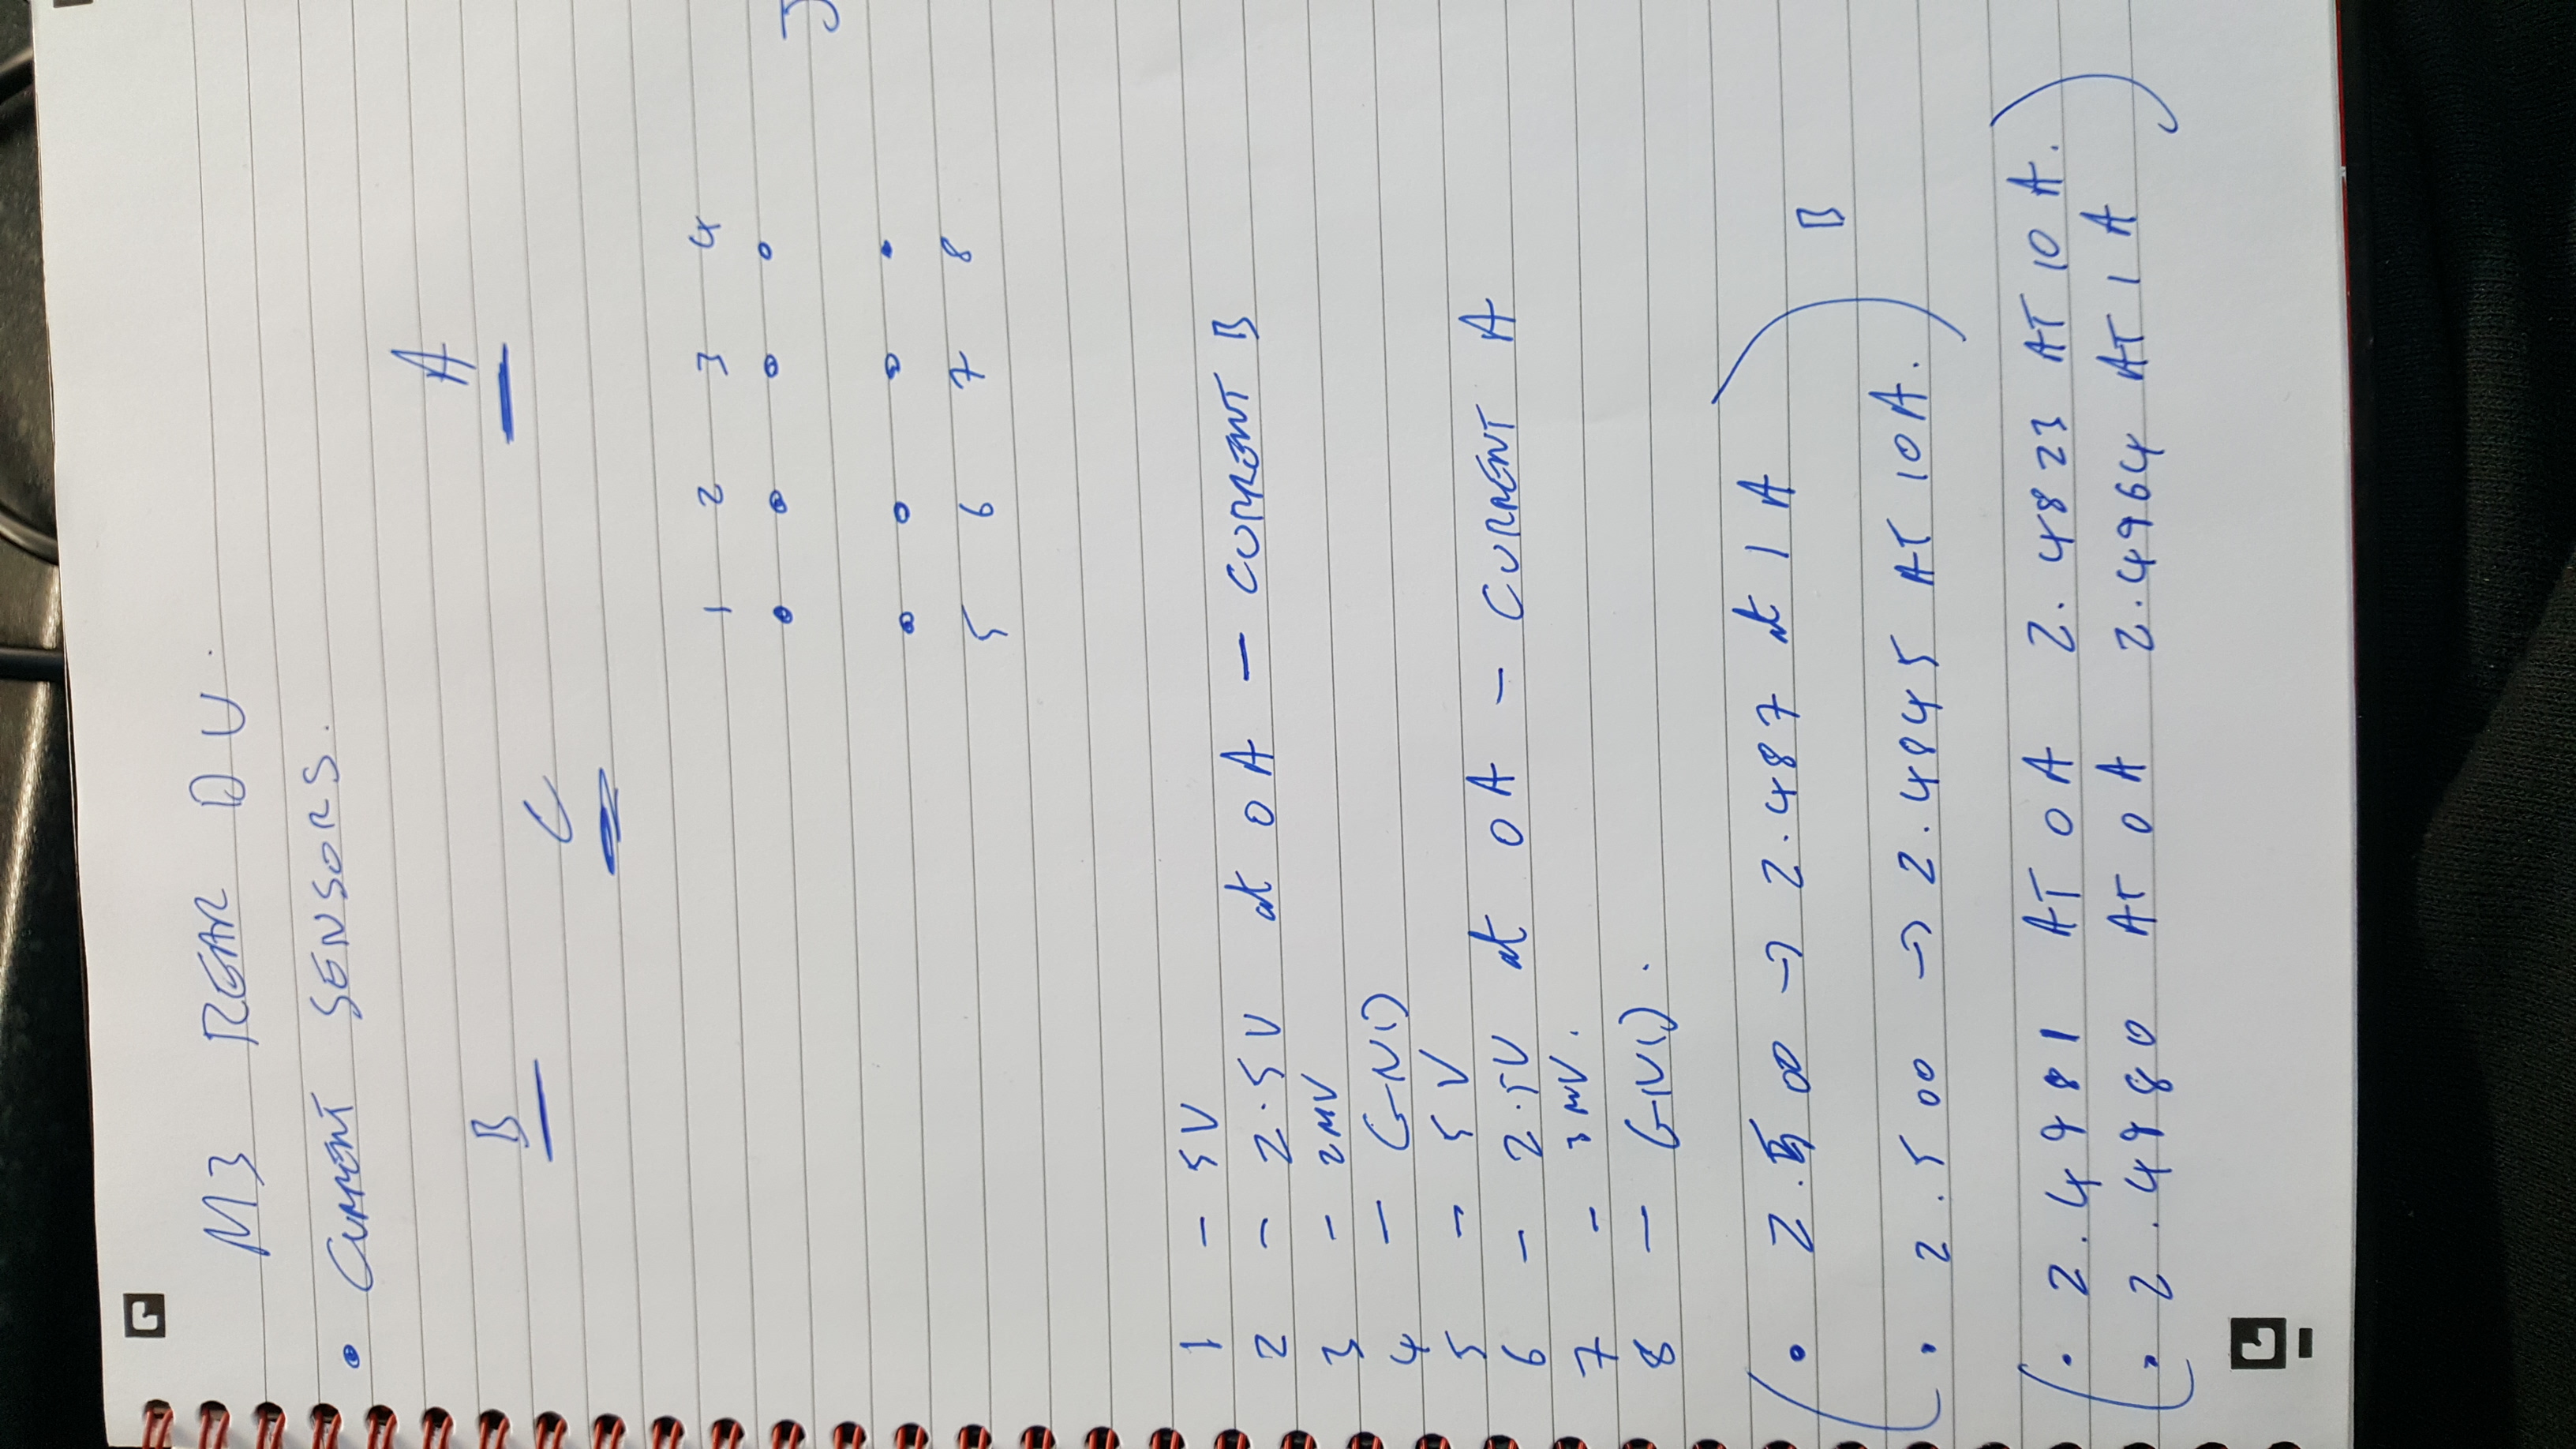 M3 REAR DU.
• CURRENT SENSORS.
B C A
1 2 3 4
5 6 7 8
1 - 5V
2 - 2.5V at 0A - CURRENT B
3 - 2mV
4 - GND
5 - 5V
6 - 2.5V at 0A - CURRENT A
7 - 3mV.
8 - GND.
• 2.500 -> 2.487 at 1A
B
• 2.500 -> 2.4845 AT 10A.
• 2.4981 AT 0A 2.4823 AT 10A.
• 2.4980 AT 0A 2.4964 AT 1A